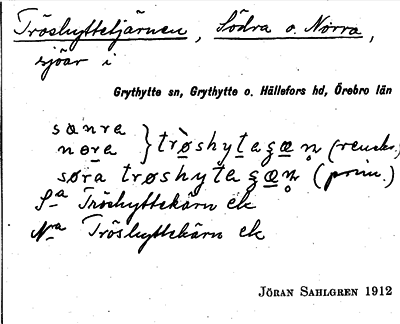 Tröshyttetjärnen, Södra o. Norra,
sjöar i
Grythytte sn, Grythytte o. Hällefors hd, Örebro län
sœnra
nora } trøshytagæn
søra trøshytagæn (prim.)
Sa Tröshyttekärn ek
Na Tröshyttekärn ek
JÖRAN SAHLGREN 1912